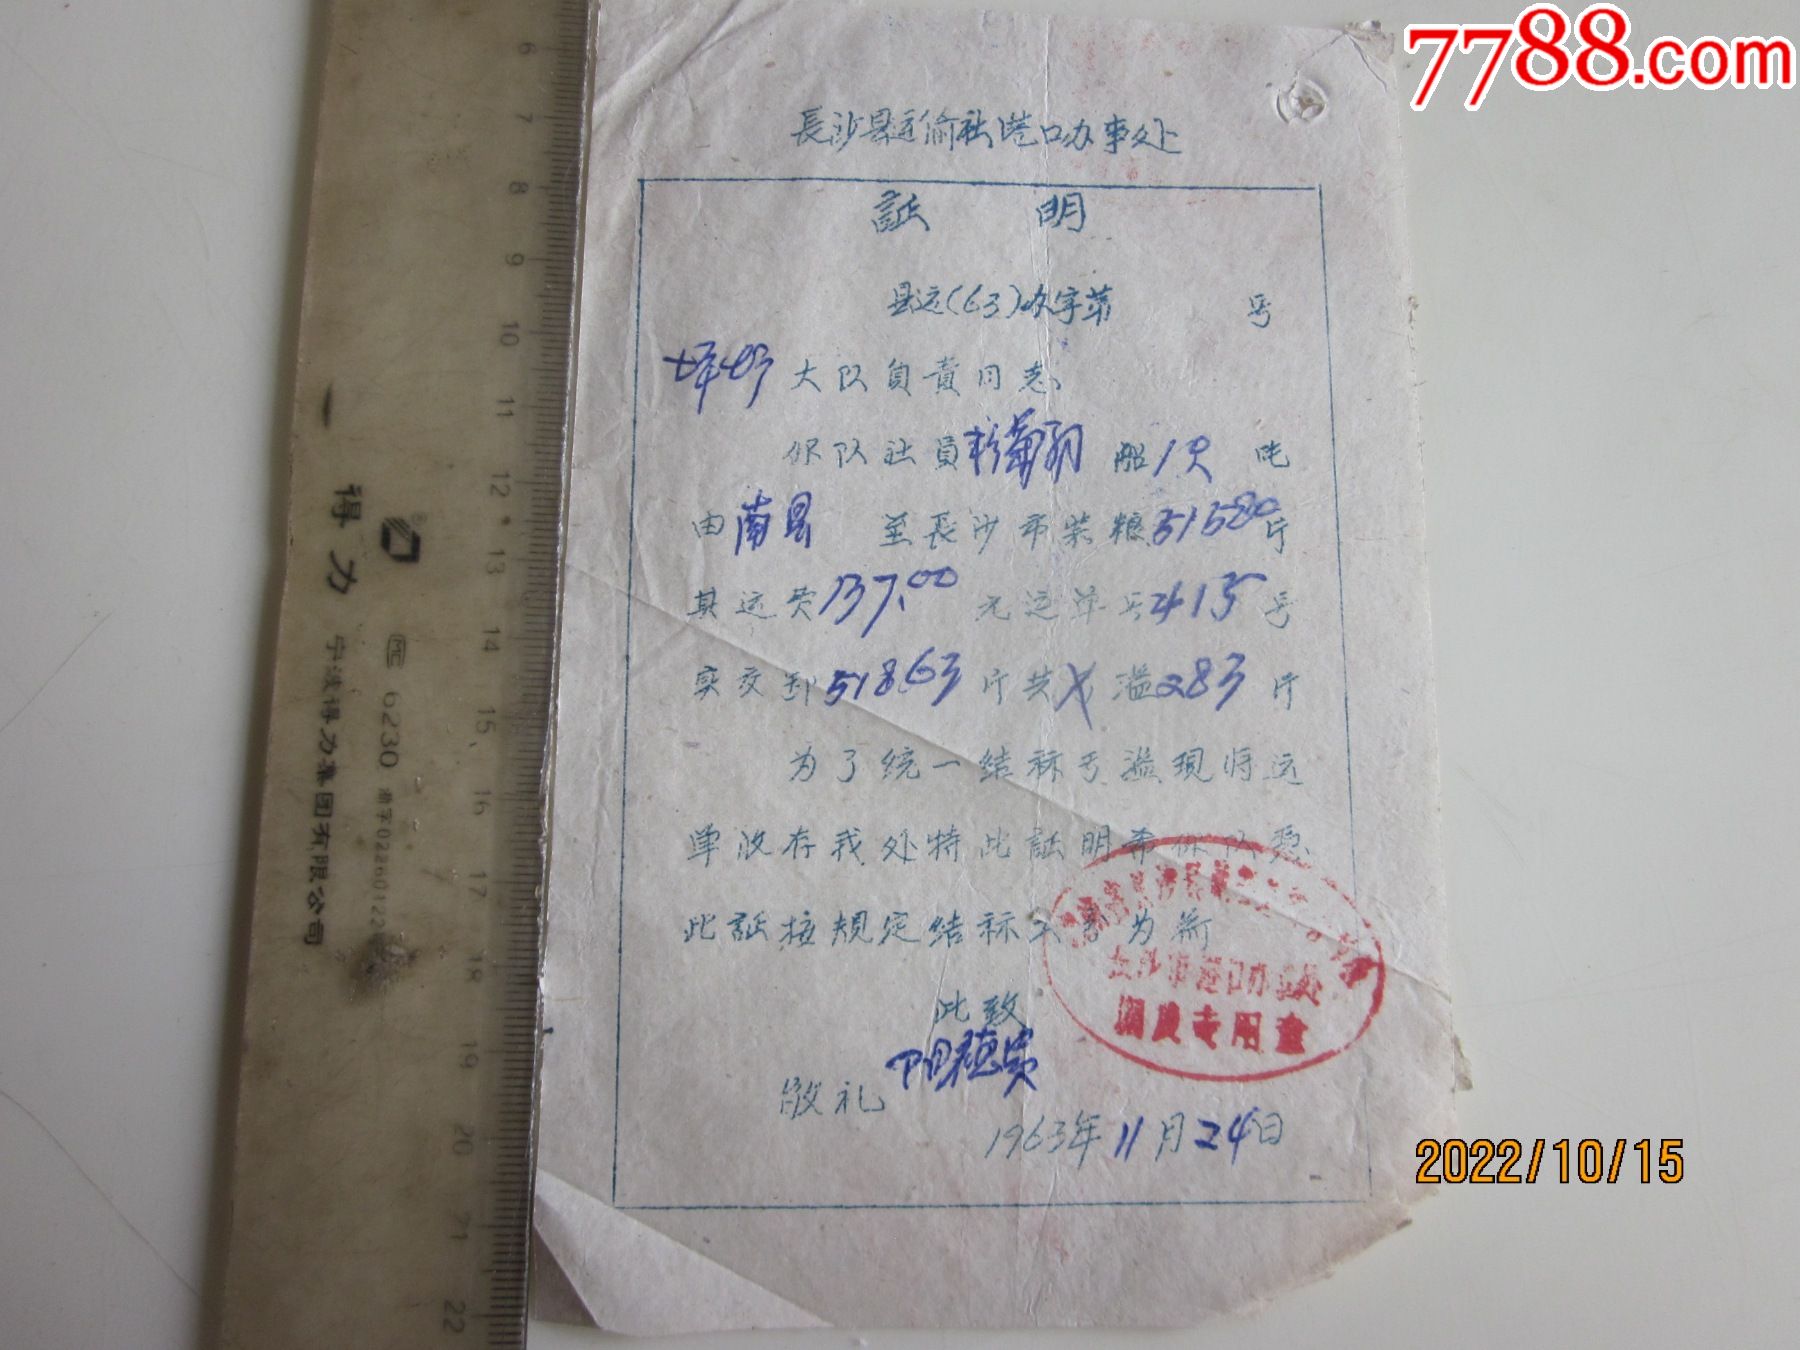 7788.com
長沙县运输社港口办事处
証明
县运(63)办字第 号
大队負責同志
你队社員 船1只 吨
由南县 至長沙市装粮51580斤
其运费137.00元运单号2415号
实交卸51863斤共 溢283斤
为了统一结祘亏溢現将运
单收存我处特此証明希你队憑
此証按規定结祘 为荷
此致
敬礼
1963年11月24日
专用章
2022/10/15
6
7
8
9
10
11
12
13
14
15
16
17
18
19
20
21
22
得力
MC
6230
宁波得力集团有限公司